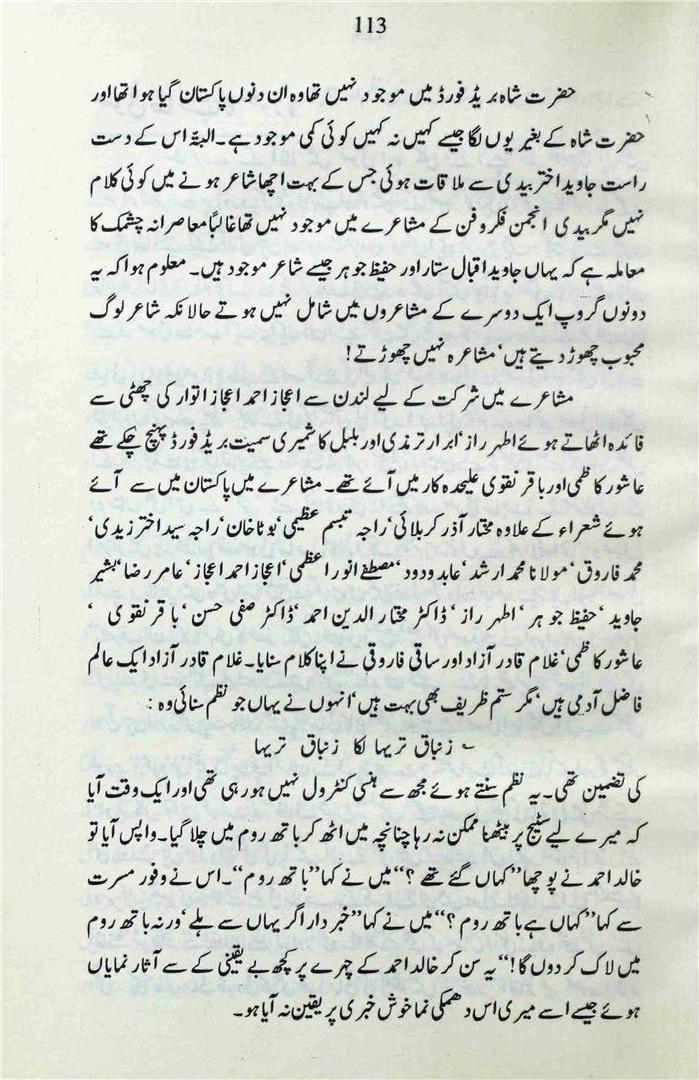 113
حضرت شاہ بریڈ فورڈ میں موجود نہیں تھا وہ ان دنوں پاکستان گیا ہوا تھا اور
حضرت شاہ کے بغیر یوں لگا جیسے کہیں نہ کہیں کوئی کمی موجود ہے۔ البتہ اس کے دست
راست جاوید اختر بیدی سے ملاقات ہوئی جس کے بہت اچھا شاعر ہونے میں کوئی کلام
نہیں مگر بیدی انجمن فکر و فن کے مشاعرے میں موجود نہیں تھا غالباً معاصرانہ چشمک کا
معاملہ ہے کہ یہاں جاوید اقبال ستار اور حفیظ جوہر جیسے شاعر موجود ہیں۔ معلوم ہوا کہ یہ
دونوں گروپ ایک دوسرے کے مشاعروں میں شامل نہیں ہوتے حالانکہ شاعر لوگ
محبوب چھوڑ دیتے ہیں' مشاعرہ نہیں چھوڑتے!
مشاعرے میں شرکت کے لیے لندن سے اعجاز احمد اعجاز اتوار کی چھٹی سے
فائدہ اٹھاتے ہوئے اطہر راز' ابرار ترمذی اور بلبل کاشمیری سمیت بریڈ فورڈ پہنچ چکے تھے
عاشور کاظمی اور باقر نقوی علیحدہ کار میں آئے تھے۔ مشاعرے میں پاکستان میں سے آئے
ہوئے شعراء کے علاوہ مختار آذر کربلائی' راجہ تبسم عظیمی' بوٹا خان' راجہ سید اختر زیدی'
محمد فاروق' مولانا محمد ارشد' عابد ودود' مصطفےٰ انور اعظمی' اعجاز احمد اعجاز' عامر رضا' بشیر
جاوید' حفیظ جوہر' اطہر راز' ڈاکٹر مختار الدین احمد' ڈاکٹر صفی حسن' باقر نقوی '
عاشور کاظمی' غلام قادر آزاد اور ساقی فاروقی نے اپنا کلام سنایا۔ غلام قادر آزاد ایک عالم
فاضل آدمی ہیں' مگر ستم ظریف بھی بہت ہیں' انہوں نے یہاں جو نظم سنائی وہ :
؎ زنباق تریہا لکا زنباق تریہا
کی تضمین تھی۔ یہ نظم سنتے ہوئے مجھ سے ہنسی کنٹرول نہیں ہو رہی تھی اور ایک وقت آیا
کہ میرے لیے سٹیج پر بیٹھنا ممکن نہ رہا چنانچہ میں اٹھ کر باتھ روم میں چلا گیا۔ واپس آیا تو
خالد احمد نے پوچھا "کہاں گئے تھے؟" میں نے کہا "باتھ روم"۔ اس نے وفور مسرت
سے کہا "کہاں ہے باتھ روم؟" میں نے کہا "خبردار اگر یہاں سے ہلے' ورنہ باتھ روم
میں لاک کر دوں گا!" یہ سن کر خالد احمد کے چہرے پر کچھ بے یقینی کے سے آثار نمایاں
ہوئے جیسے اسے میری اس دھمکی نما خوش خبری پر یقین نہ آیا ہو۔